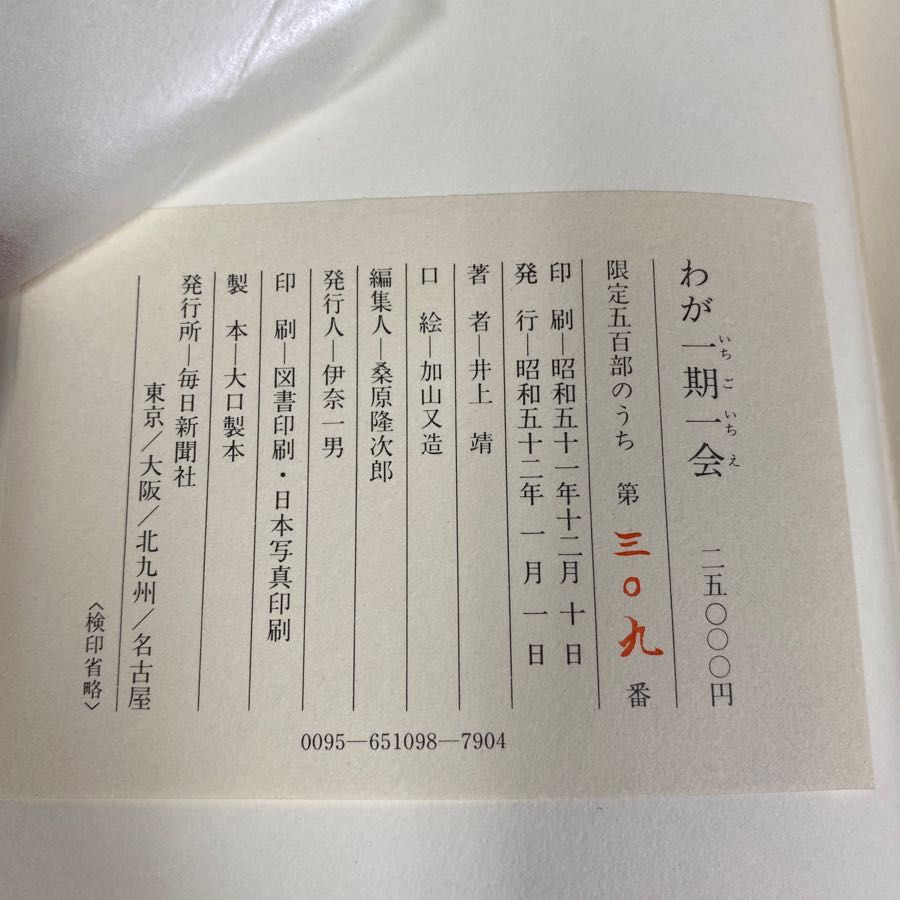 わが一期一会 二五〇〇〇円
いちごいちえ
限定五百部のうち 第三〇九番
印 刷―昭和五十一年十二月 十日
発 行―昭和五十二年 一月 一日
著 者―井上 靖
口 絵―加山又造
編集人―桑原隆次郎
発行人―伊奈一男
印 刷―図書印刷・日本写真印刷
製 本―大口製本
発行所―毎日新聞社
東京/大阪/北九州/名古屋
〈検印省略〉
0095―651098―7904